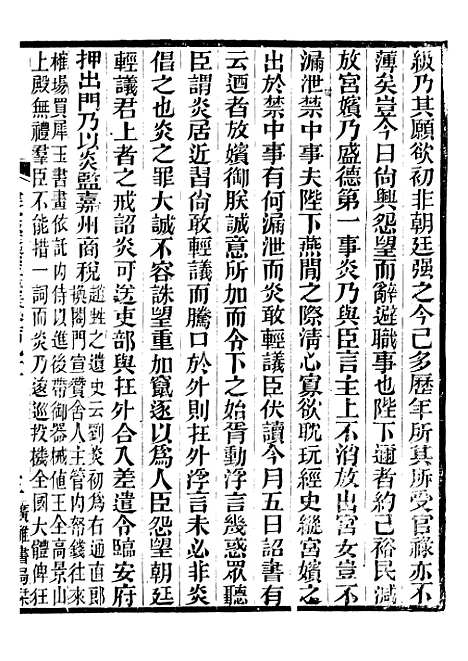 級乃其願欲初非朝廷强之今已多歷年所其所受官祿亦不
薄矣豈今日尙興怨望而辭避職事也陛下邇者約己裕民減
放宮嬪乃盛德第一事炎乃與臣言主上不消放出宮女豈不
漏泄禁中事夫陛下燕閒之際淸心寡欲耽玩經史縱宮嬪之
出於禁中事有何漏泄而炎敢輕議臣伏讀今月五日詔書有
云迺者放嬪御朕誠意所加而令下之始胥動浮言幾惑眾聽
臣謂炎居近習尙敢輕議而騰口於外則抂外浮言未必非炎
倡之也炎之罪大誠不容誅望重加竄逐以為人臣怨望朝廷
輕議君上者之戒詔炎可送吏部與抂外合入差遣令臨安府
押出門乃以炎監嘉州商稅
趙甡之遺史云劉炎初為右通直郎
換閤門宣贊舍人主管內帑錢往來
榷場買犀玉書畫依託內侍以進後帶御器械値王全高景山
上殿無禮羣臣不能措一詞而炎乃逡巡投機全國大體俾狂
廣雅書局栞